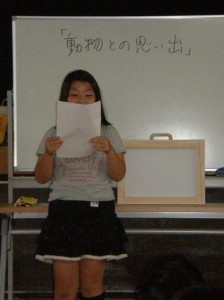 「動物との思い出」